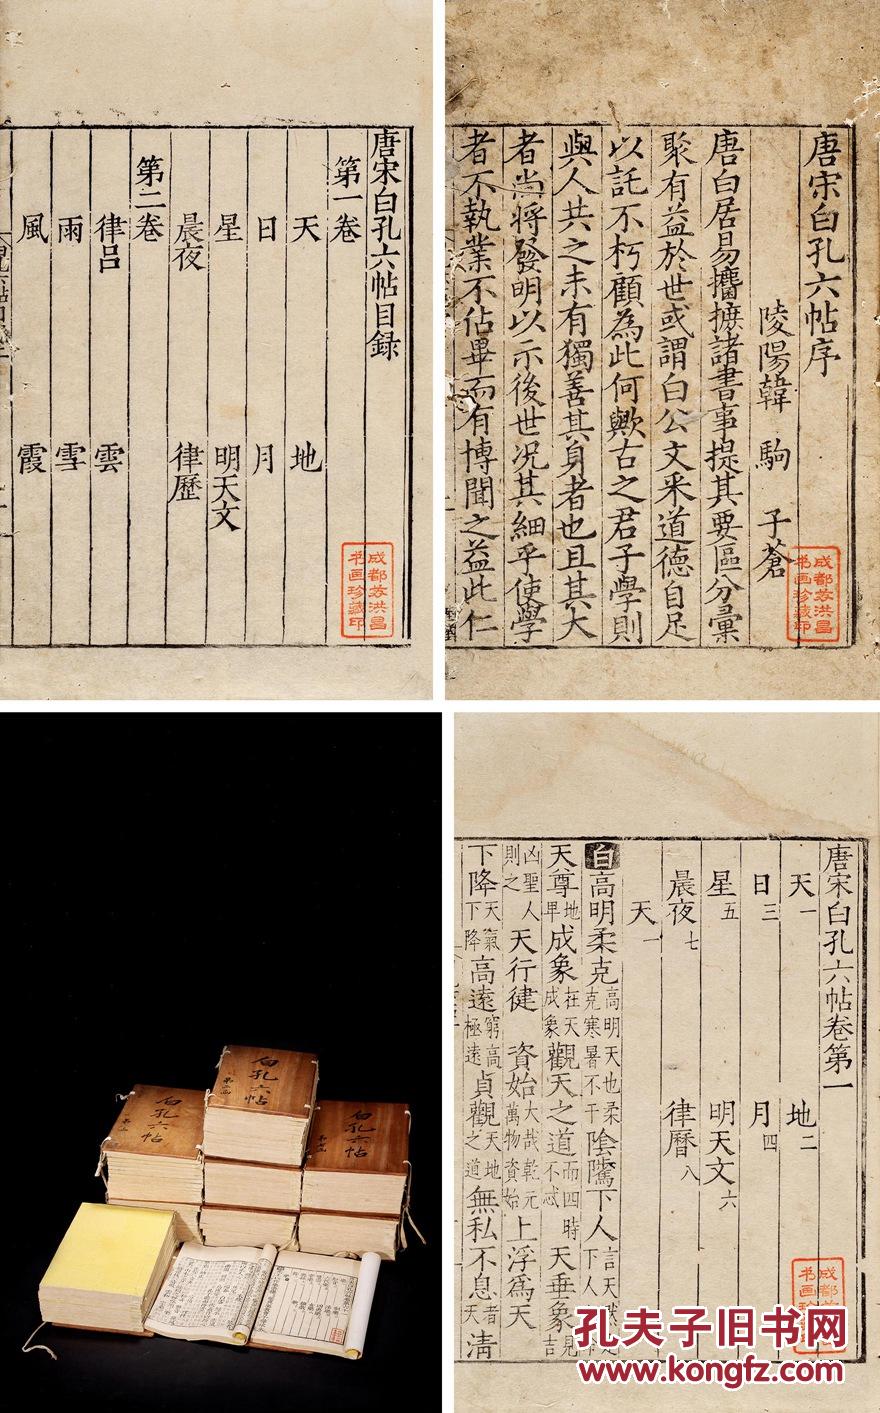 唐宋白孔六帖目録
第一卷
天　地
日　月
星　明天文
晨夜　律歷
第二卷
律吕　雲
雨　雪
風　霞
成都苏洪昌
书画珍藏印
唐宋白孔六帖序
陵陽韓　駒　子蒼
唐白居易攟摭諸書事提其要區分彙
聚有益於世或謂白公文釆道德自足
以託不朽顧為此何歟古之君子學則
與人共之未有獨善其身者也且其大
者尚將發明以示後世况其細乎使學
者不執業不佔畢而有博聞之益此仁
成都苏洪昌
书画珍藏印
白孔六帖
白孔六帖
白孔六帖
唐宋白孔六帖卷第一
天一　地二
日三　月四
星五　明天文六
晨夜七　律曆八
天一
白高明柔克高明天也柔克寒暑不干陰騭下人言天
天尊地卑成象在天成象觀天之道而四時不忒天垂象見吉
凶聖人則之天行健　資始大哉乾元萬物資始上浮爲天
下降天氣下降高遠窮高極遠貞觀天地之道無私不息者天清
孔夫子旧书网
www.kongfz.com